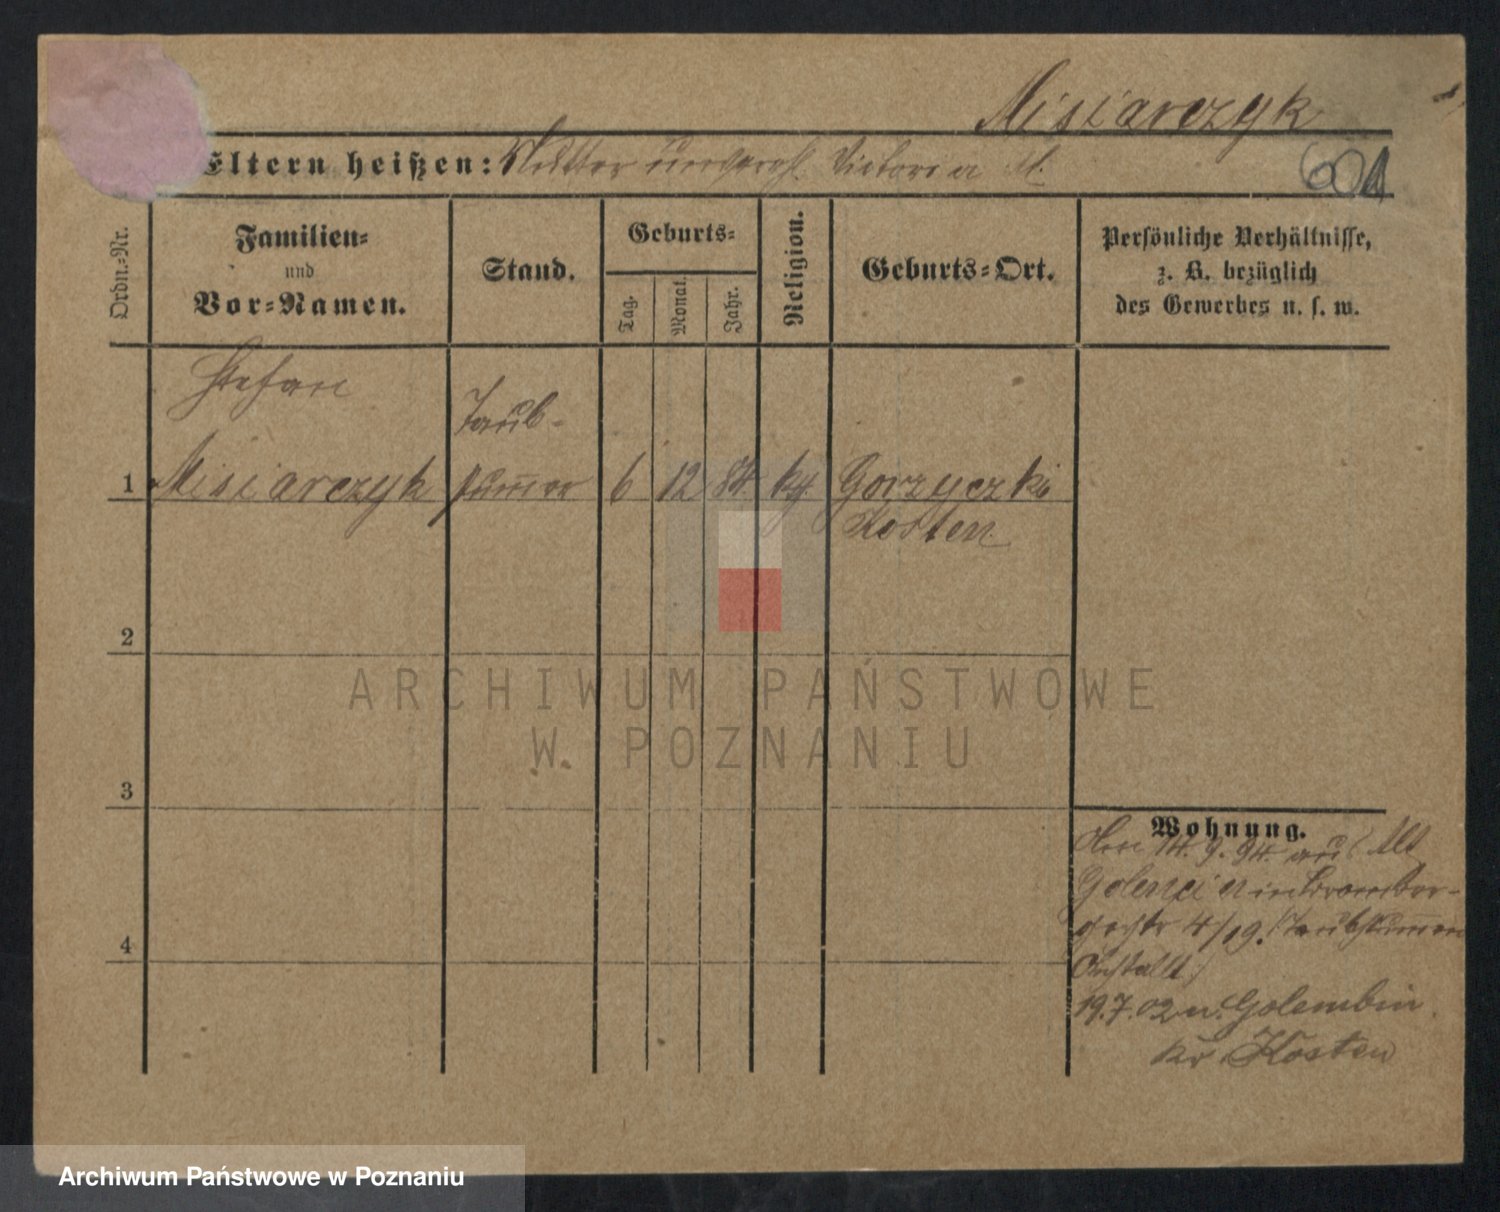 Misiarczyk
Eltern heißen: Mutter unverehl. Victoria M.
601
Ordn.-Nr.
Familien-
und
Vor-Namen.
Stand.
Geburts-
Tag.
Monat.
Jahr.
Religion.
Geburts-Ort.
Persönliche Verhältnisse,
z. B. bezüglich
des Gewerbes u. s. w.
Stefan
Taub-
1 Misiarczyk stummer 6 12 84. kth. Gorzyczki
Kosten
2
3
4
Wohnung.
14. 9. 94. aus Alt
Golencin in Bromber-
4/19. (Taubstummen
Anstalt)
19.7.02 n. Golembin
Kr. Kosten
ARCHIWUM PAŃSTWOWE
W POZNANIU
Archiwum Państwowe w Poznaniu